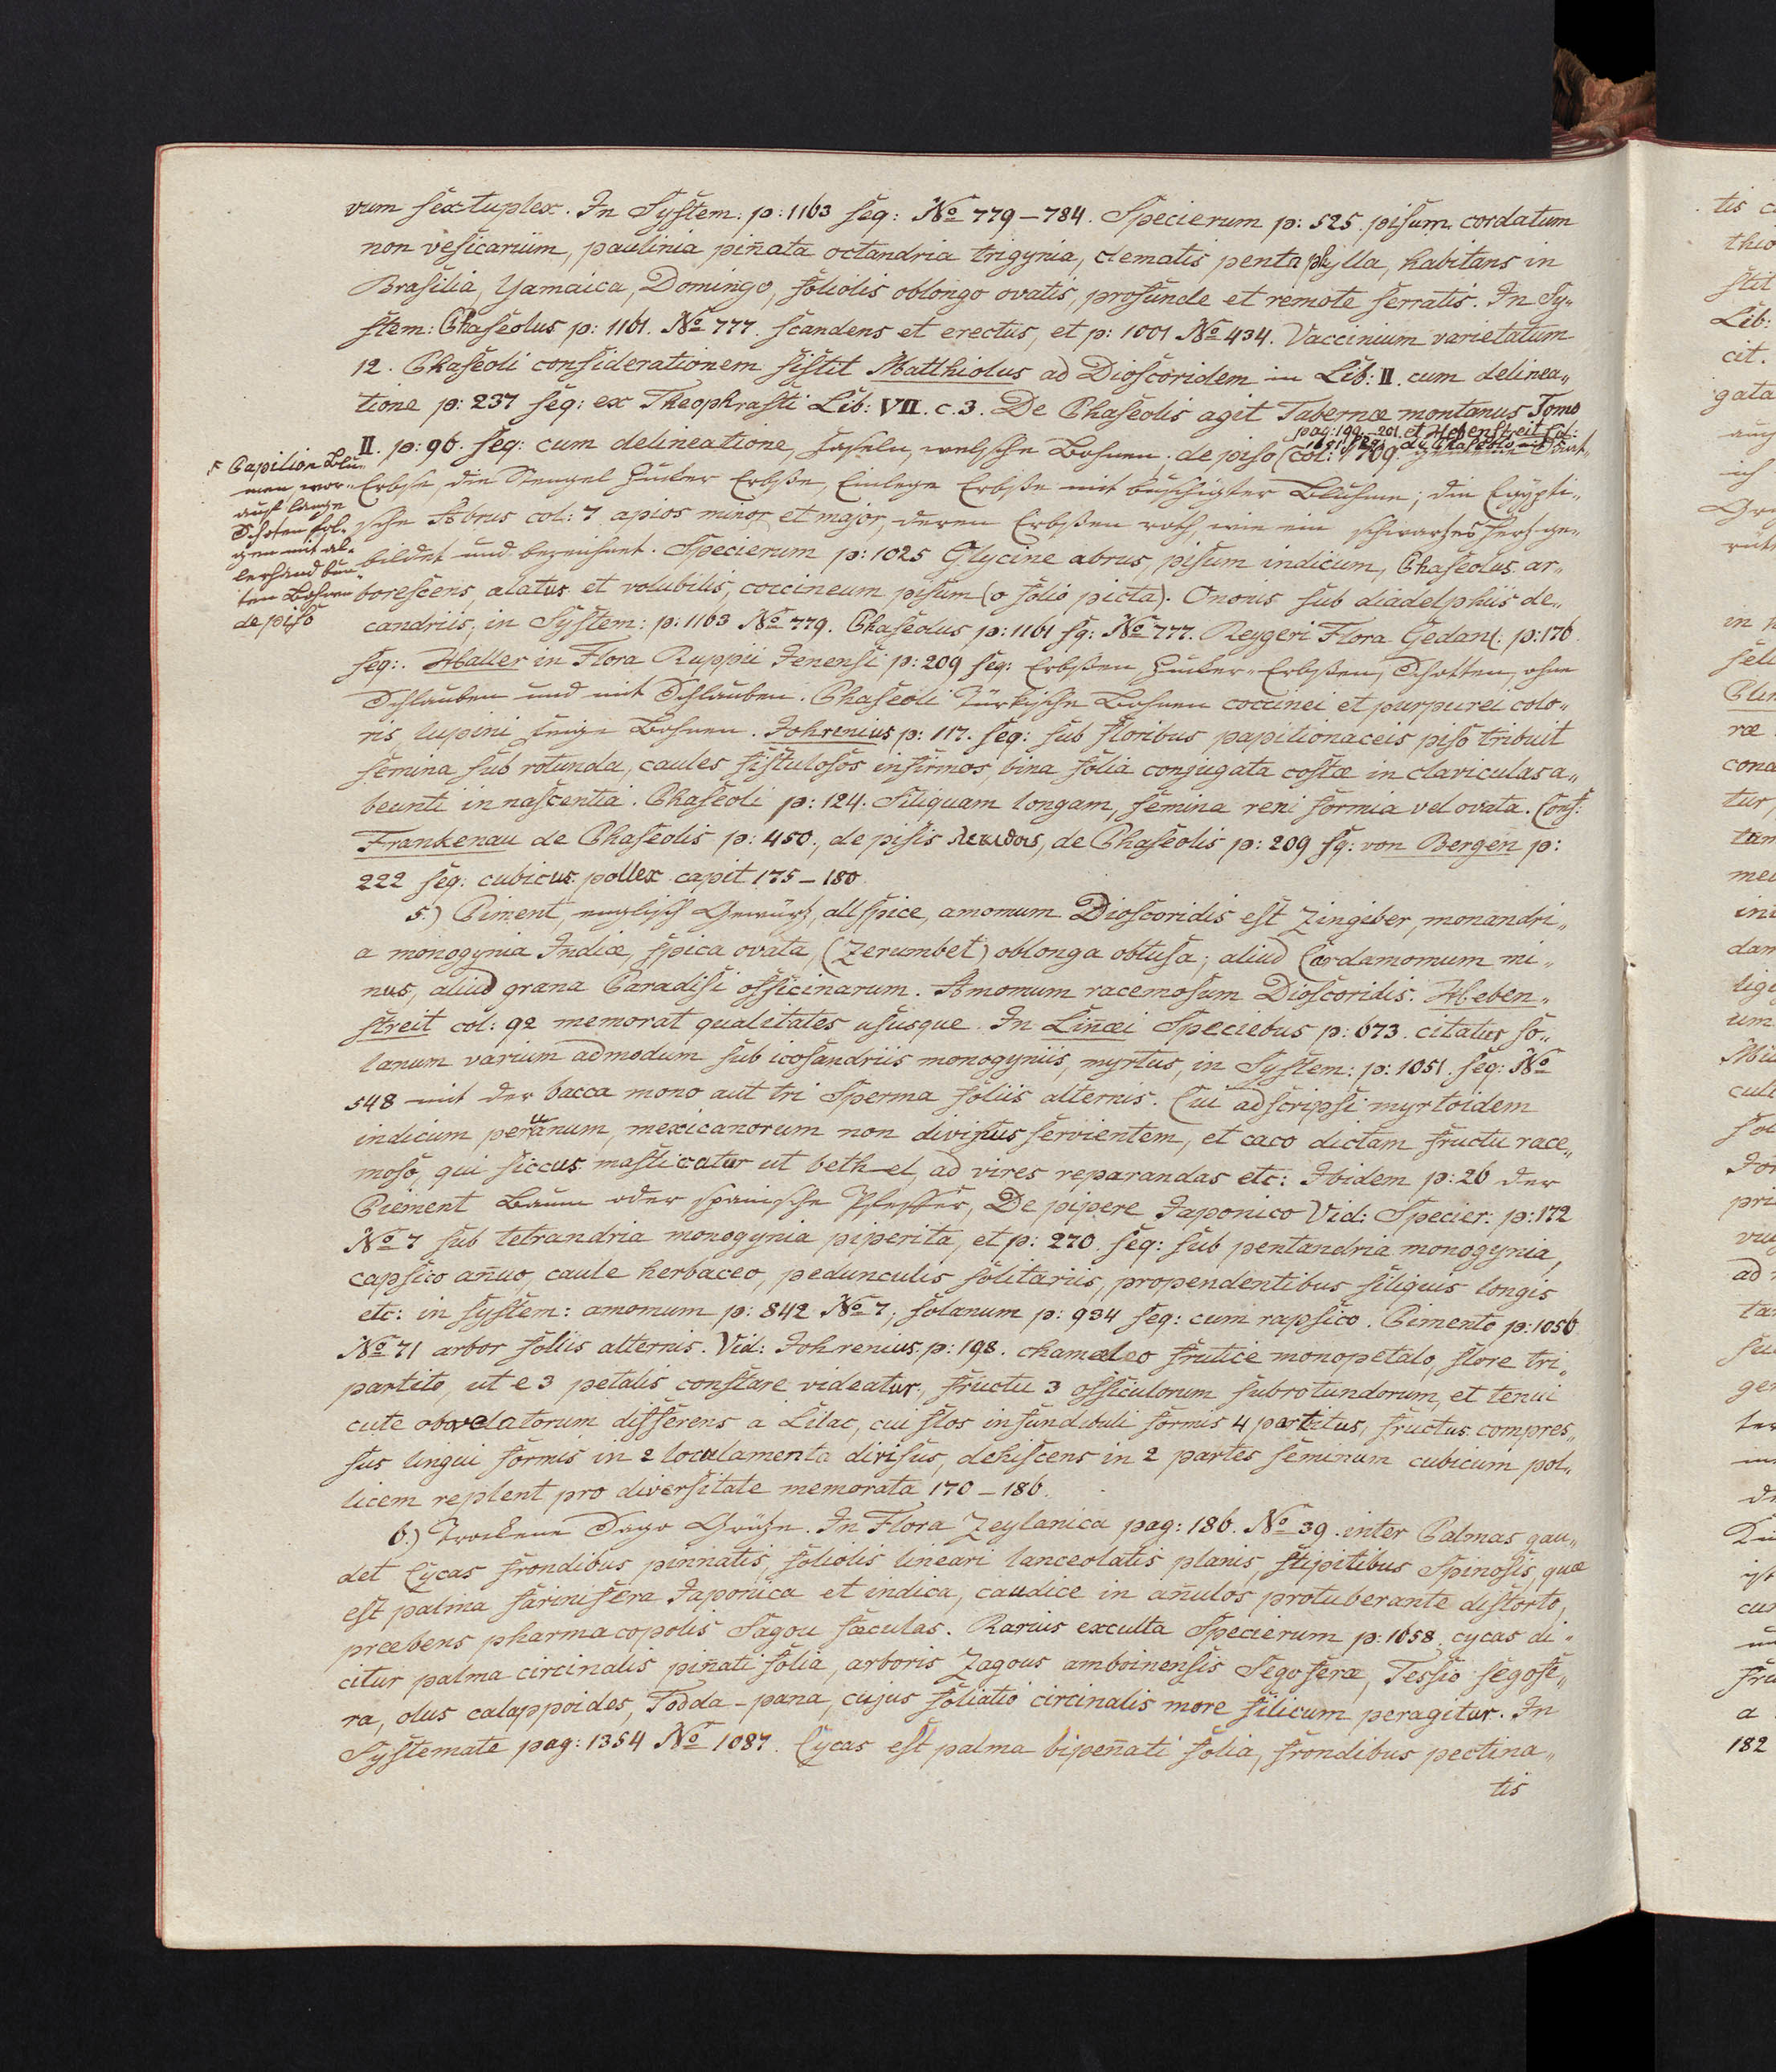 vum sextuplex. In System: p: 1163 seq: No 779–784. Specierum p: 525. pisum cordatum
non vesicarium, paulinia piñata octandria trigynia, clematis pentaphylla, habitans in
Brasilia, Yamaica, Domingo, foliolis oblongo ovatis, profunde et remote serratis. In Sy„
stem: Phaseolus p: 1161. No 777. scandens et erectus, et p: 1001 No 434. Vaccinium varietatum
12. Phaseoli considerationem sistit Matthiolus ad Dioscoridem in Lib: II. cum delinea„
tione p: 237 seq: ex Theophrasti Lib: VII. c. 3. De Phaseolis agit Tabernæ montanus Tomo
pag: 199–201. et Hebenstreit col:
1691 seq: de Phaseolo
II. p: 96. seq: cum delineatione, Faseln, welsche Bohnen; de piso (col: 1709.
Papilion Blu„
men wor„
auf lange
Schoten fol„
gen mit al„
lerhand bun„
ten Bohnen
de piso
Erbse, die Stengel Zucker Erbsse, Einlege Erbsse mit buschigter Bluhme; die Egypti„
sche Abrus col: 7 apios minor et major, deren Erbssen roth wie ein schwartzes Hertz ge„
bildet und bezeichnet. Specierum p: 1025 Glycine abrus, pisum indicum, Phaseolus ar„
borescens, alatus et volubilis, coccineum pisum (o folio picta). Ononis sub diadelphiis de„
candriis, in System: p: 1163 No 779. Phaseolus, p: 1161 sq: No 777. Reygeri Flora Gedan(: p: 176
seq:. Haller in Flora Ruppii Jenensi p: 209 seq: Erbssen, Zucker„Erbssen, Schotten, ohne
Schlauben und mit Schlauben. Phaseoli Türkische Bohnen coccinei et purpurei colo„
ris, lupini feige Bohnen. Johrenius p: 117. seq: sub floribus papilionaceis piso tribuit
semina sub rotunda, caules fistulosos infirmos, bina folia conjugata costæ in claviculas a„
beunti in nascentia. Phaseoli p: 124. Siliquam longam, semina reni formia vel ovata. Conf:
Frankenau de Phaseolis p: 450., de pisis λεκιθοις, de Phaseolis p: 209 sq: von Bergen p:
222 seq: cubicus pollex capit 175–180.
5.) Piment, englisch Gewürtz, allspice, amomum Dioscoridis est Zingiber, monandri„
a monogynia Indiæ, spica ovata, (Zerumbet) oblonga obtusa; aliud Cardamomum mi„
nus, aliud grana Paradisi officinarum. Amomum racemosum Dioscoridis. Heben„
streit col: 92 memorat qualitates ususque. In Liñæi Speciebus p: 673. citatur so„
lanum varium admodum sub icosandriis monogyniis, myrtus, in System: p: 1051. seq: No
548 mit der bacca mono aut tri sperma foliis alternis. Cui adscripsi myrtoidem
indicum peruanum, mexicanorum non divinus servientem, et caco dictam fructu race„
moso, qui siccus masticatur ut bethel, ad vires reparandas etc: Ibidem p: 26 der
Piement Baum oder spanische Pfeffer, De pipere Japonico Vid: Specier: p: 172
No 7 sub tetrandria monogynia piperita, et p: 270. seq: sub pentandria monogynia,
capsico añuo, caule herbaceo, pedunculis solitariis, propendentibus siliquis longis
etc: in system: amomum p: 842 No 7, solanum p: 934 seq: cum capsico. Pimento p: 1056
No 71 arbor foliis alternis. Vid: Johrenius p: 198. chamæleo frutice monopetalo, flore tri„
partito, ut e 3 petalis constare videatur, fructu 3 officulorum subrotundorum, et tenui
cute obvelatorum differens a Lilac, cui flos infundibuli formis 4 partitus, fructus compres„
sus lingui formis in 2 loculamenta divisus, dehiscens in 2 partes seminum cubicum pol„
licem replent pro diversitate memorata 170–186.
6.) Trockene Sago Grütze. In Flora Zeylanica pag: 186. No 39. inter Palmas gau„
det Cycas frondibus pinnatis, foliolis lineari lanceolatis planis, stipitibus spinosis, quæ
est palma farinifera Japonica et indica, caudice in añulos protuberante distorto,
præbens pharmacopolis Sagou fæculas. Rarius exculta Specierum p: 1658. cycas di„
citur palma circinalis piñati folia, arboris Zagous amboinensis Segoferæ, Tessio segofe„
ra, olus calappoides, Todda-pana, cujus foliatio circinalis more filicum peragitur. In
Systemate pag: 1354 No 1087. Cycas est palma bipeñati folia, frondibus pectina„
tis